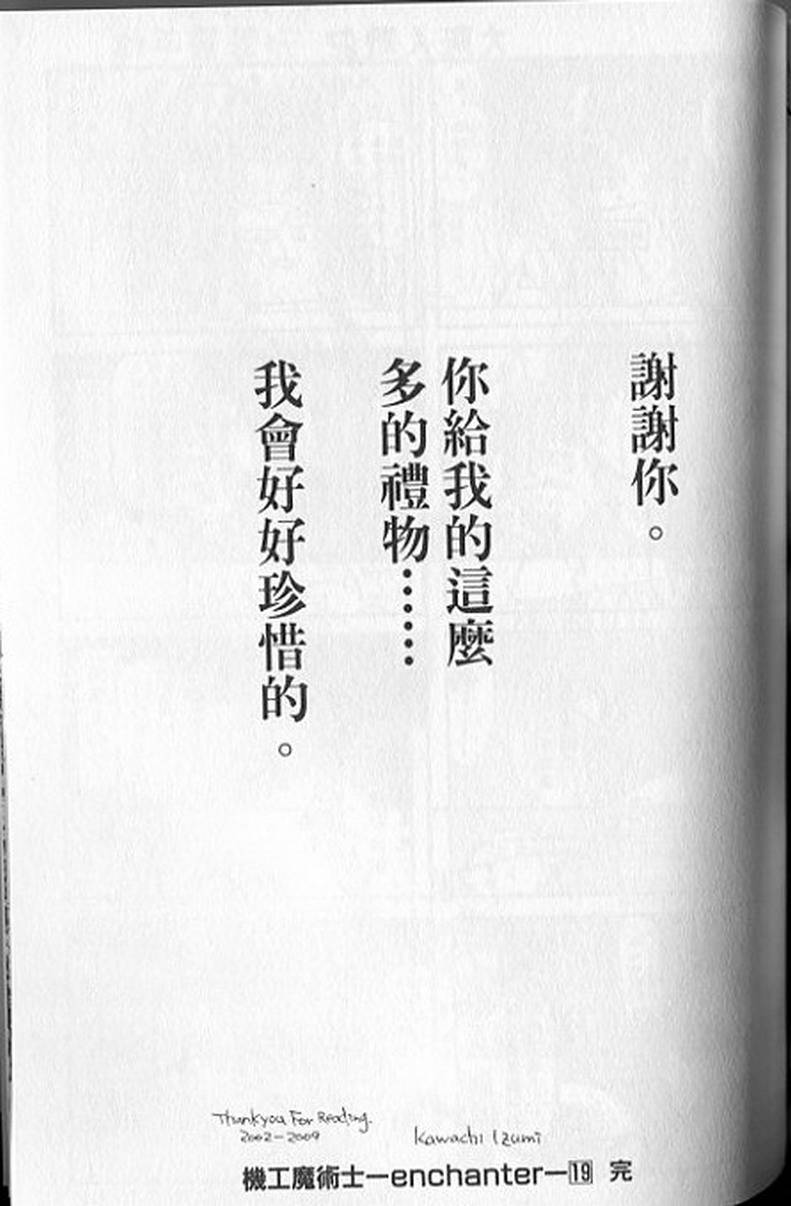 謝謝你。
你給我的這麼
多的禮物……
我會好好珍惜的。
Thankyou For Reading.
2002-2009
Kawachi Izumi
機工魔術士—enchanter—19 完